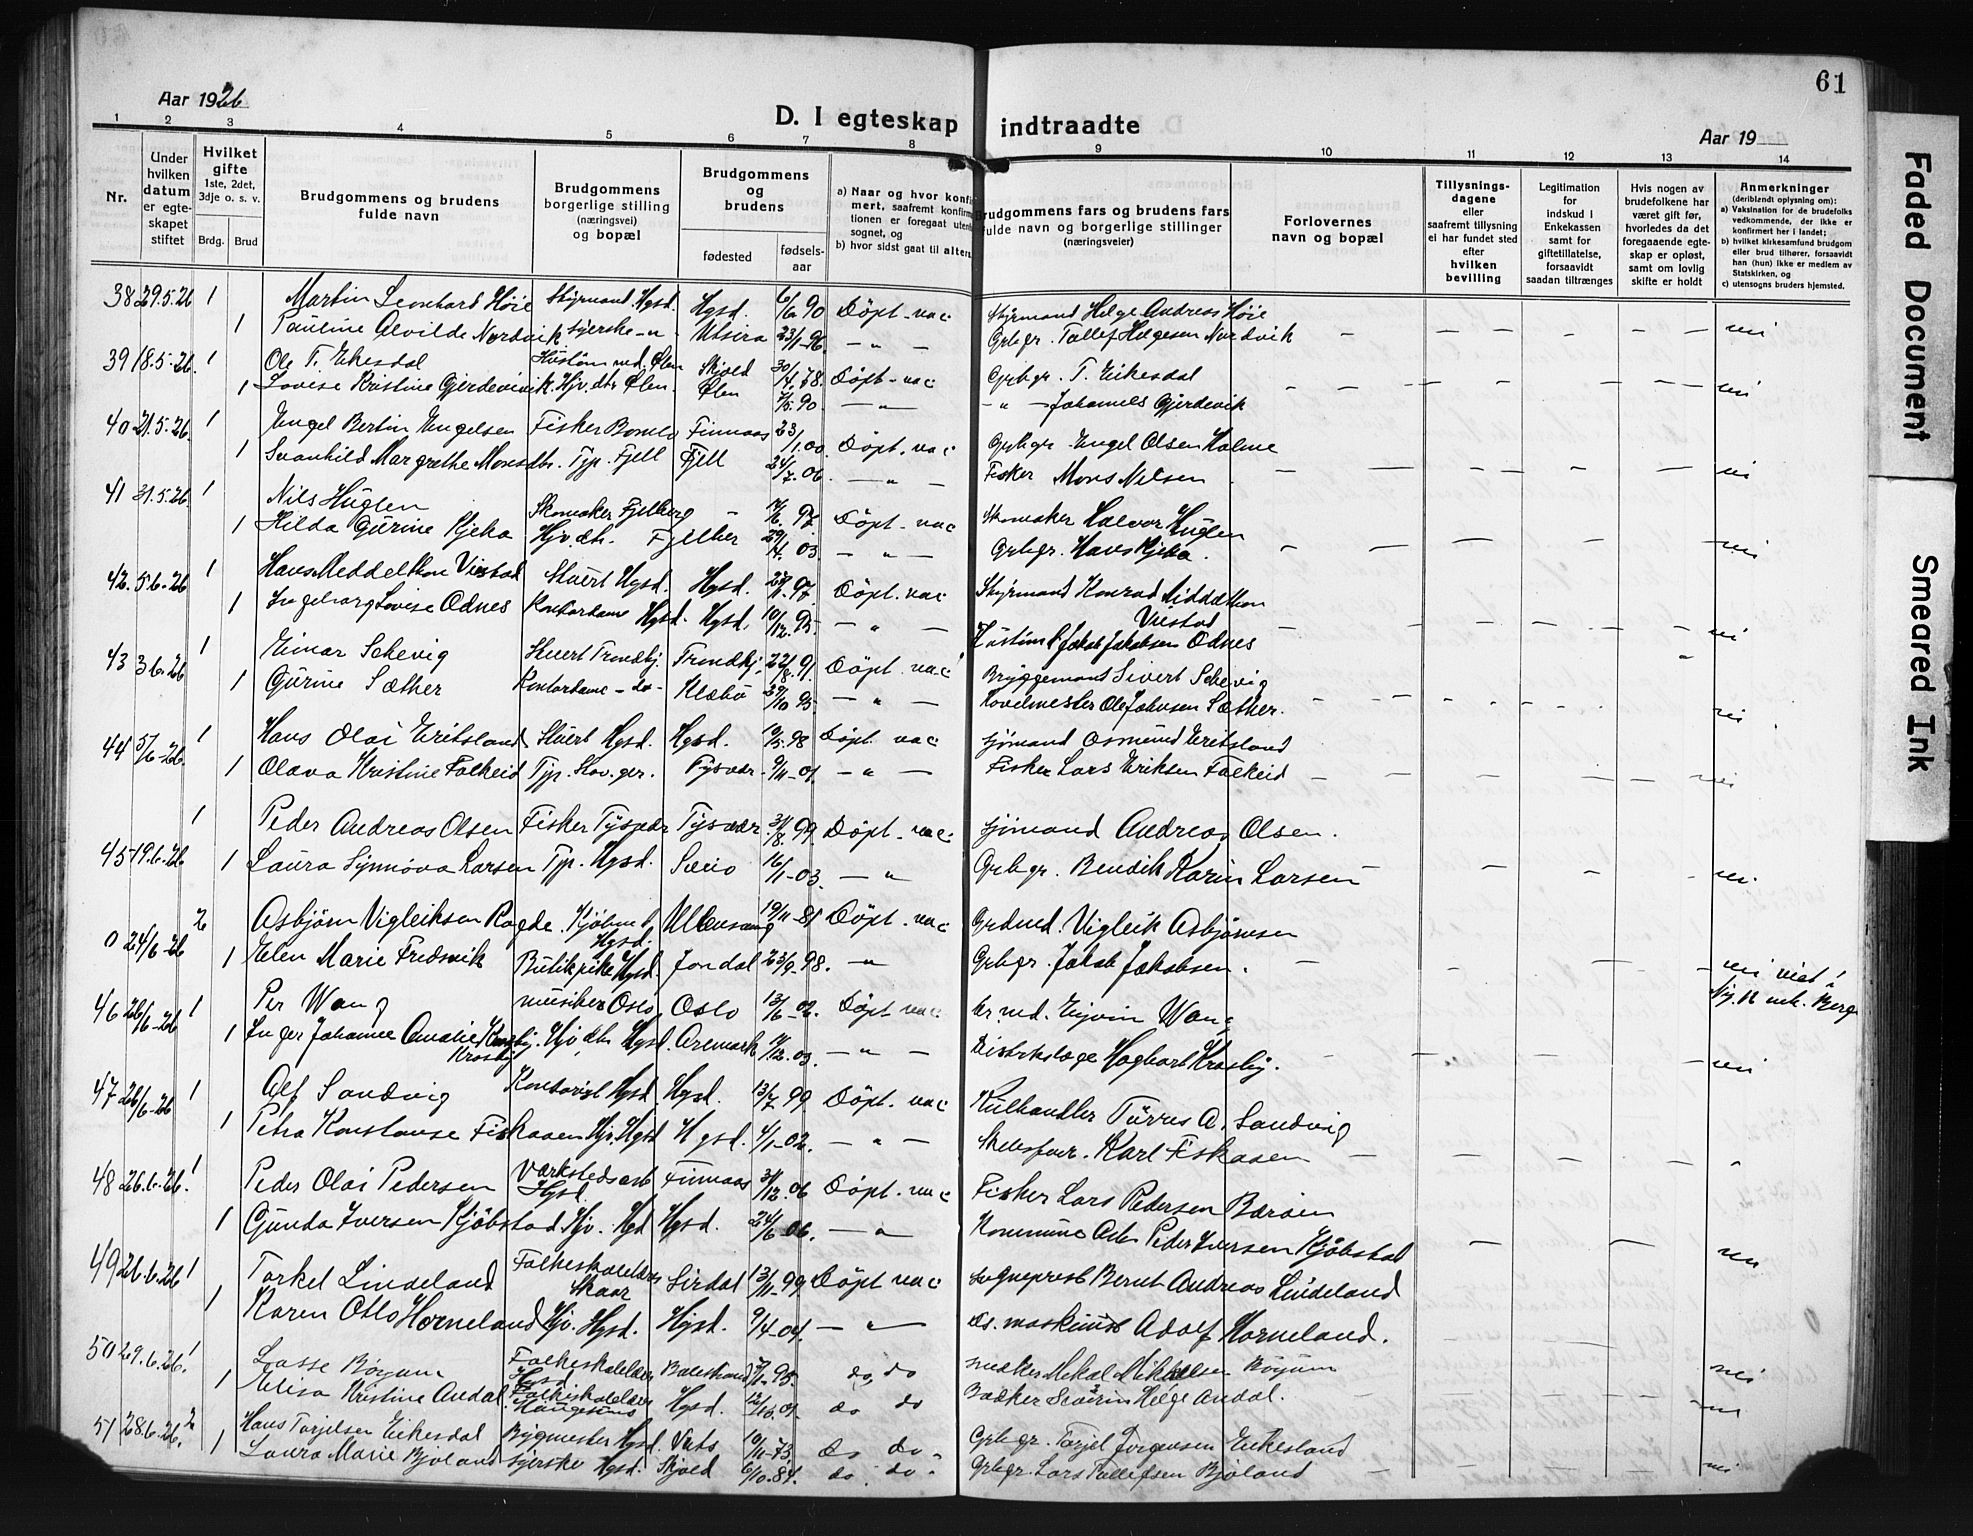 61
Aar 1926
D. I egteskap indtraadte
Aar 19
1 2 3 4 5 6 7 8 9 10 11 12 13 14
Nr.
Under hvilken datum er egteskapet stiftet
Hvilket gifte 1ste, 2det, 3dje o. s. v.
Brdg. Brud
Brudgommens og brudens fulde navn
Brudgommens borgerlige stilling (næringsvei) og bopæl
Brudgommens og brudens
fødested fødsels-aar
a) Naar og hvor konfirmert, saafremt konfirmationen er foregaat utenfor sognet, og
b) hvor sidst gaat til alters
Brudgommens fars og brudens fars fulde navn og borgerlige stillinger (næringsveier)
Forlovernes navn og bopæl
Tillysningsdagene eller saafremt tillysning ei har fundet sted efter hvilken bevilling
Legitimation for indskud i Enkekassen samt for giftetillatelse, forsaavidt saadan tiltrænges
Hvis nogen av brudefolkene har været gift før, hvorledes da det foregaaende egteskap er opløst, samt om lovlig skifte er holdt
Anmerkninger (deriblandt oplysning om):
a) Vaksination for de brudefolks vedkommende, der ikke er konfirmert her i landet;
b) hvilket kirkesamfund brudgom eller brud tilhører, forsaavidt han (hun) ikke er medlem av Statskirken, og
c) utensogns bruders hjemsted.
38 29.5.26 1 Martin Leonhard Höie Styrmand. Hgsd. Hgsd. 90 Döpt - vac Styrmand Helge Andreas Höie
1 Pauline Alvilde Nordvik syerske - " - Utsira 23/1-96 - " - Grbgr. Tollef Helgesen Nordvik - nei
39 18.5-26. 1 Ole T. Eikesdal Ølen Skjold 30/4.78. Döpt - vac Grbgr. T. Eikesdal
1 Lovise Kristine Gjerdevik. Hjv. dtr Ølen. Ølen 7/5.90 - " - - " - Johannes Gjerdevik nei
40 21.5.26. 1 Engel Bertin Engelsen Fisker Bömlo Finnaas 23/1.00. Döpt. vac Grbgr. Engel Olsen Holme
1 Svanhild Margrethe Monsdtr. Tjp. Fjell Fjell 24/7.06. - " - Fisker Mons Nilsen nei
41 31.5.26. 1 Nils Huglen Skomaker Fjelberg - 97. Döpt - vac Skomaker Halvor Huglen
1 Hilda Gurine Kjeka Hjv. dtr. Fjelber 29/4. 03 - " - Grbgr. Hans Kjeka. nei
42. 5.6.-26 1 Hans Meddelthon Viestad Stuert Hgsd. Hgsd. 97. Döpt. vac Styrmand Konrad Middelthon Viestad
1 Ingeborg Lovise Odnes Kontordame Hgsd. Hgsd. 10/12.95. - " - Jakob Jakobsen Odnes nei
43 3.6.26 1 Einar Schevig Stuert Trondhj. Trondhj. 22/8.91 Döpt. vac Bryggemand Sivert Schevig
1 Gurine Sæther Kontordame - do - Klæbu 29/10 95. - " - Ole Johnsen Sæther. nei
44 5/6-26. 1 Hans Olai Eritsland Stuert Hgsd. Hgsd. 19/5.98 Döpt vac Sjömand Osmund Eritsland
1 Olava Kristine Falkeid Tjp. Skov.ger. Tysvær. 9/11-01. - " - Fisker Lars Eriksen Falkeid nei
1 Peder Andreas Olsen Fisker Tysvær Tysvær 31/8.99 Döpt - vac Sjömand Andreas Olsen.
45 19.6.26 1 Laura Synnöva Larsen Tjp. Hgsd. Sveio 16/1-03. - " Grbgr. Bendik Karin Larsen nei.
0 24/6-26 2 Asbjörn Vigleiksen Ragde. Kjöbm. Hgsd. Ullensvang 19/11-81 Döpt - vac Grdmd. Vigleik Asbjörnsen
1 Elen Marie Fredsvik Butikpike Hgsd. Jondal 23/9-98. - " Grbgr. Jakob Jakobsen. - nei viet i
46 26/6-26 1 Per Wang musiker Oslo Oslo 13/6-02. Döpt vac Eyvin Wang
1 Inger Johanne Amalie Krosby. Hjv. dtr Hgsd. Aremark 03. - " - Distrktslæge Hagbart Krosby. nei
47 26/6-26 1 Alf Sandvig Kontorist Hgsd. Hgsd. 13/7 99 Döpt. vac Kulhandler Torres A. Sandvig
1 Petra Konstanse Fiskaaen Hjv. Hgsd Hgsd. 4/1-02. - " - Karl Fiskaaen - "
48 26.6.26. 1 Peder Olai Pedersen Værkstedsarb Hgsd. Finnaas 31/12.06 Döpt. vac Fisker Lars Pedersen Baröen
1 Gunda Iversen Kjöbstad Hjv. Hgsd Hgsd. 24/6-06. - " Kommune Arb. Peder Iversen Kjöbstad - nei
49 26.6.26 1 Torkel Lindeland Folkeskolelærer Skaar Sirdal 13/11-99 Döpt vac Sogneprest Bernt Andreas Lindeland
1 Karen Otto Horneland Hjv. Hgsd. Hgsd. 9/4-04. - " - Adolf Horneland.
50 29.6.26. 1 Lasse Böyum Folkeskolelærer Hgsd. Balestrand 95. do, do Snedker Mikal Mikkelsen Böyum nei
1 Elisa Kristine Andal Folkeskolelærer Haugesund Hgsd. 01. do do Bødker Severin Helge Andal. nei
51 28.6.26. 2 Hans Torjelsen Eikesdal Bygmester Hgsd. Vats 10/11-73. do do - Grbgr. Torjel Jörgensen Eikesland
1 Laura Marie Bjoland syerske Hgsd. Skjold 6/10.84. do. do - Grbgr. Lars Tollefsen Bjoland - nei
Faded Document
Smeared Ink